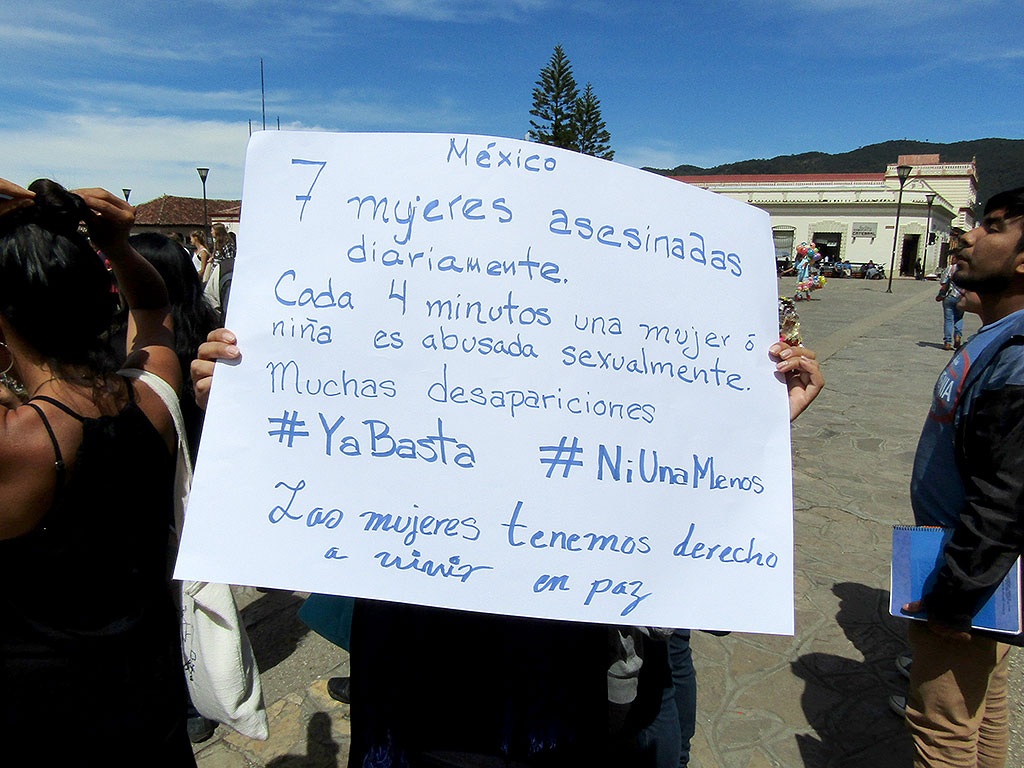 México
7 mujeres asesinadas
diariamente.
Cada 4 minutos una mujer ó
niña es abusada sexualmente.
Muchas desapariciones
#YaBasta #NiUnaMenos
Las mujeres tenemos derecho
a vivir en paz